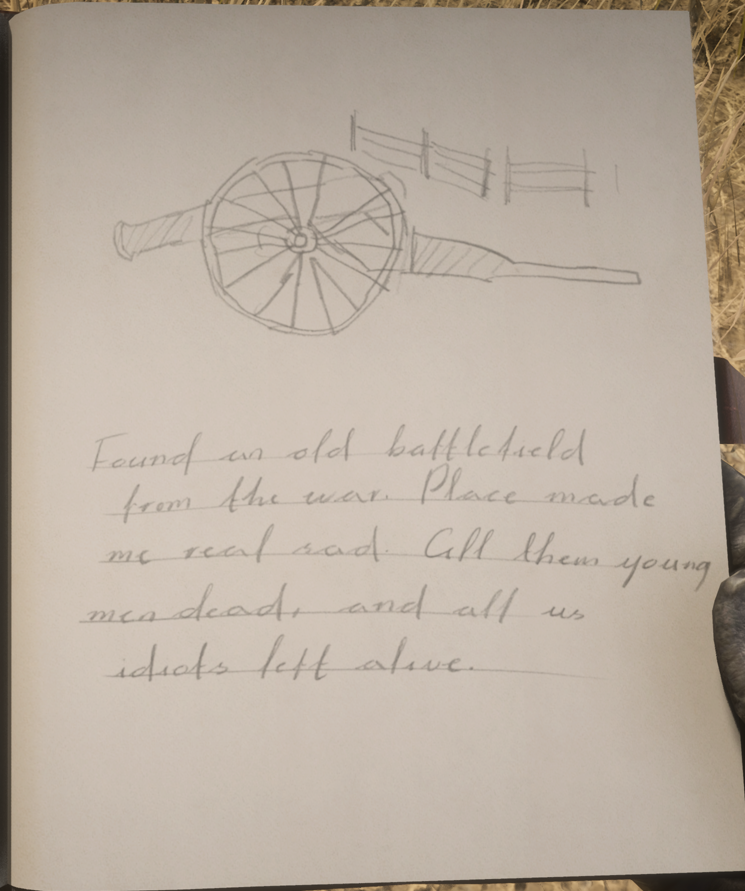 Found an old battlefield
from the war. Place made
me real sad. All them young
men dead, and all us
idiots left alive.